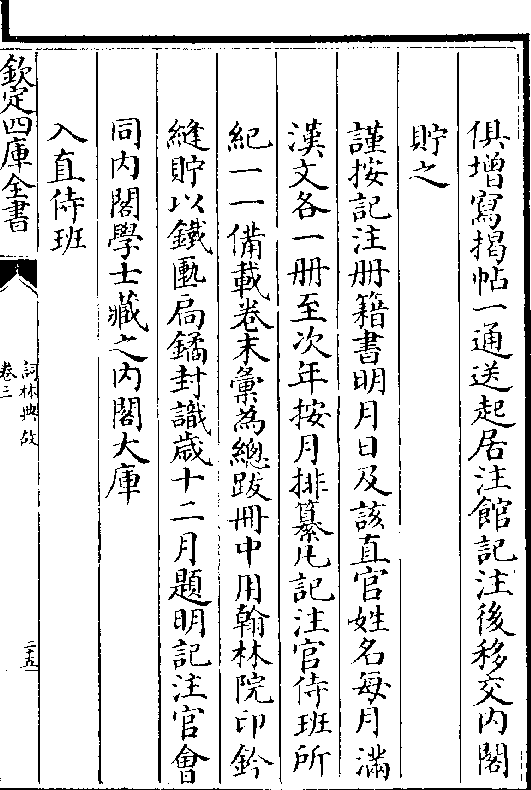 俱增寫揭帖一通送起居注館記注後移交内閣
貯之
謹按記注册籍書明月日及該直官姓名每月滿
漢文各一册至次年按月排纂凡記注官侍班所
紀一一備載卷末彙為總跋冊中用翰林院印鈐
縫貯以鐵匭扃鐍封識歲十二月題明記注官會
同内閣學士藏之内閣大庫
入直侍班
欽定四庫全書
詞林典故
卷三
二五